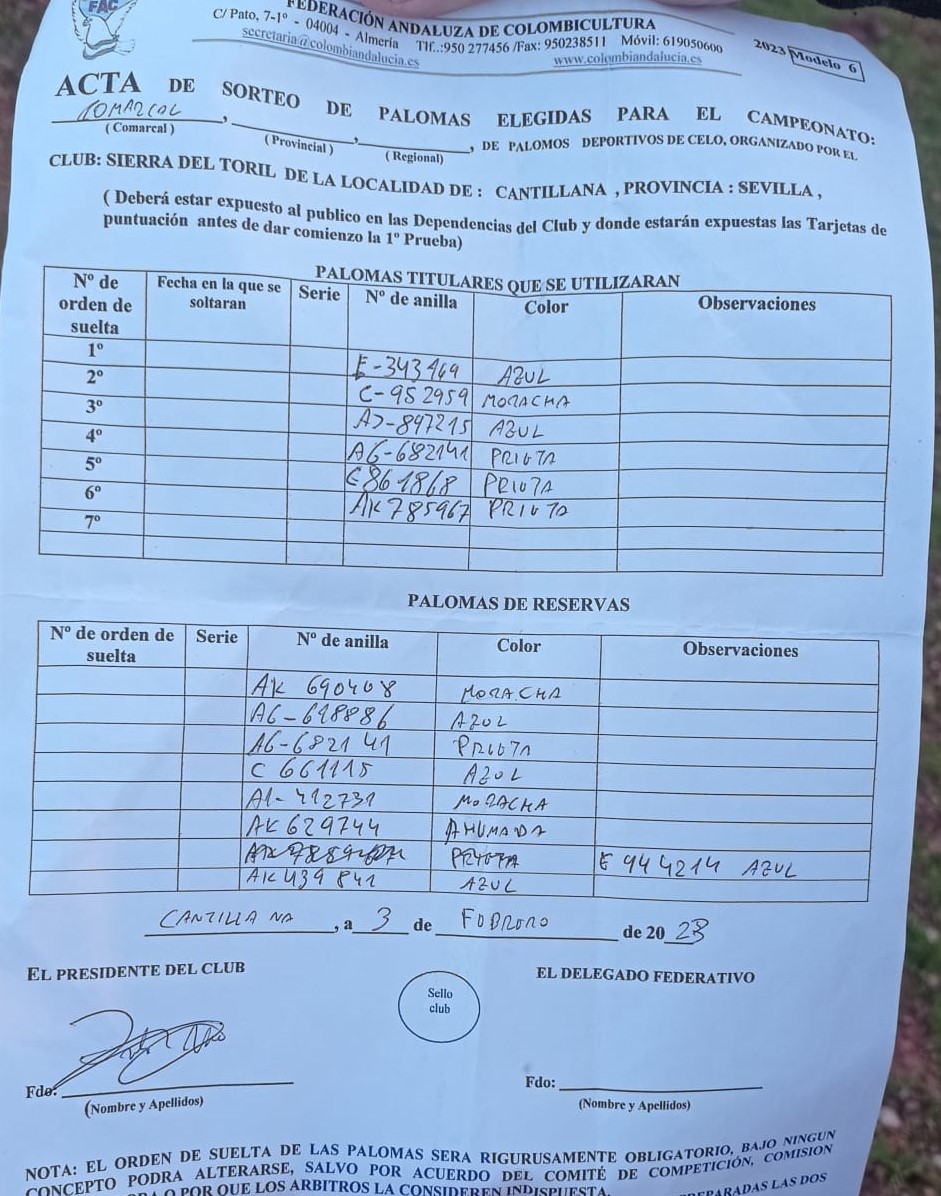 FAC
FEDERACIÓN ANDALUZA DE COLOMBICULTURA
C/ Pato, 7-1º - 04004 - Almería Tlf..:950 277456 /Fax: 950238511 Móvil: 619050600
secretaria@colombiandalucia.es www.colombiandalucia.es
2023 Modelo 6
ACTA DE SORTEO DE PALOMAS ELEGIDAS PARA EL CAMPEONATO:
COMARCAL, , , DE PALOMOS DEPORTIVOS DE CELO, ORGANIZADO POR EL
( Comarcal ) ( Provincial ) ( Regional)
CLUB: SIERRA DEL TORIL DE LA LOCALIDAD DE : CANTILLANA , PROVINCIA : SEVILLA ,
( Deberá estar expuesto al publico en las Dependencias del Club y donde estarán expuestas las Tarjetas de
puntuación antes de dar comienzo la 1º Prueba)
PALOMAS TITULARES QUE SE UTILIZARAN
Nº de orden de suelta Fecha en la que se soltaran Serie Nº de anilla Color Observaciones
1º E-343469 AZUL
2º C-952959 MORACHA
3º AJ-897215 AZUL
4º A6-682141 PRIETA
5º C861868 PRIETA
6º AK 785967 PRIETA
7º
PALOMAS DE RESERVAS
Nº de orden de suelta Serie Nº de anilla Color Observaciones
AK 690408 MORACHA
A6-698886 AZUL
A6-682141 PRIETA
C 661115 AZUL
A1-412731 MORACHA
AK 629744 AHUMADA
PRIETA E 944214 AZUL
AK 439841 AZUL
CANTILLANA, a 3 de FEBRERO de 20 23
EL PRESIDENTE DEL CLUB EL DELEGADO FEDERATIVO
Sello
club
Fdo: Fdo:
(Nombre y Apellidos) (Nombre y Apellidos)
NOTA: EL ORDEN DE SUELTA DE LAS PALOMAS SERA RIGURUSAMENTE OBLIGATORIO, BAJO NINGUN
CONCEPTO PODRA ALTERARSE, SALVO POR ACUERDO DEL COMITÉ DE COMPETICIÓN, COMISION
O POR QUE LOS ARBITROS LA CONSIDEREN INDISPUESTA. PREPARADAS LAS DOS